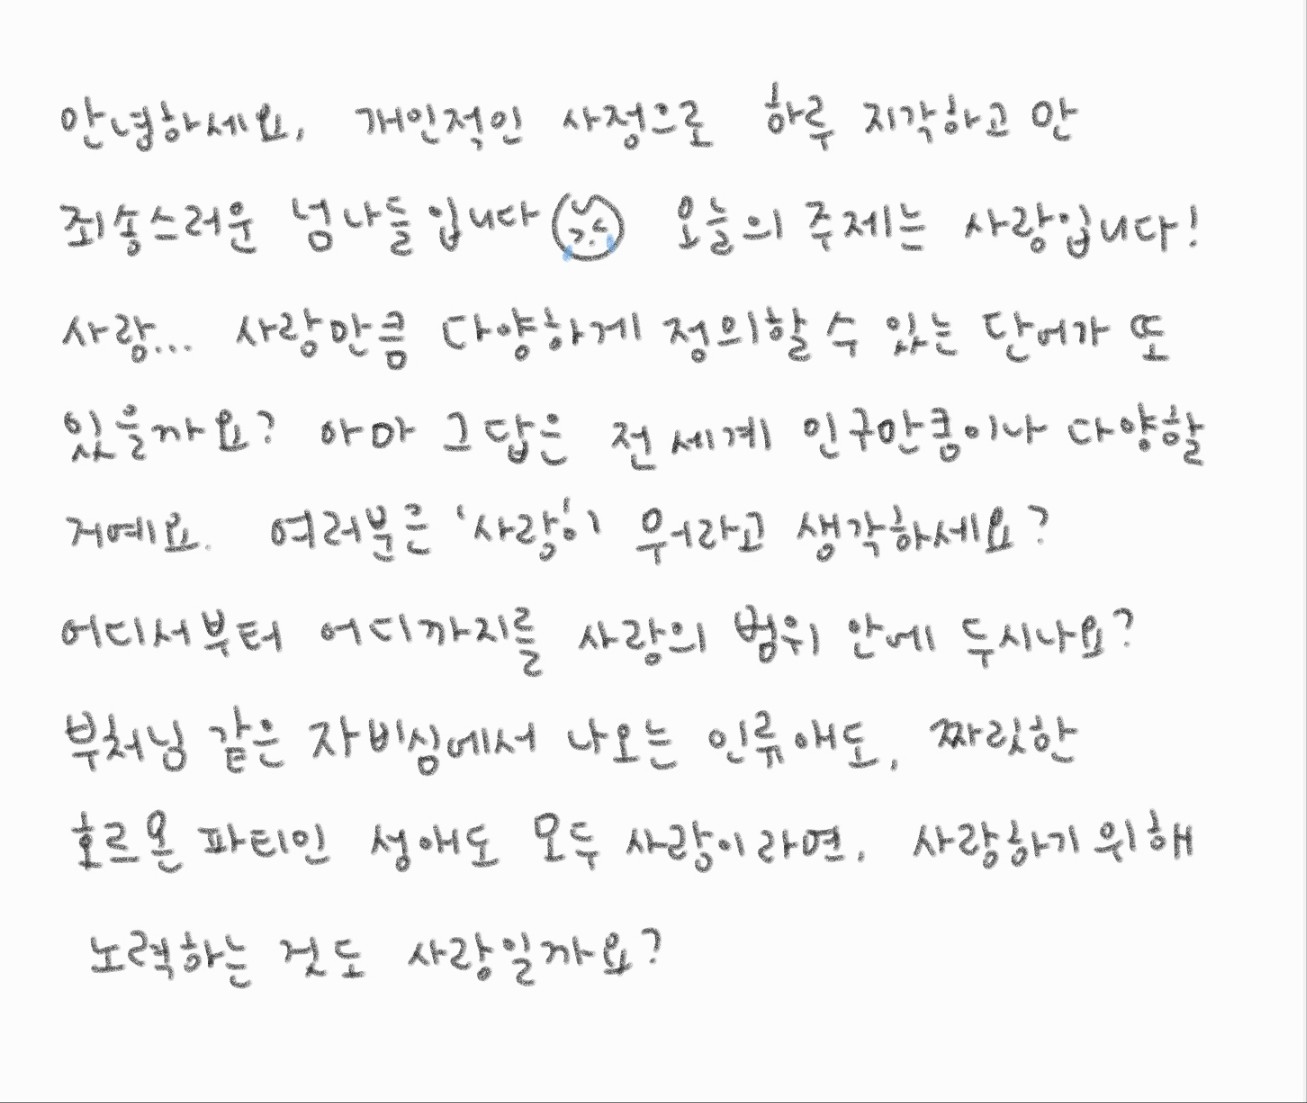 안녕하세요, 개인적인 사정으로 하루 지각하고 만
죄송스러운 넘나들입니다 오늘의 주제는 사랑입니다!
사랑... 사랑만큼 다양하게 정의할 수 있는 단어가 또
있을까요? 아마 그 답은 전 세계 인구만큼이나 다양할
거예요. 여러분은 '사랑'이 무어라고 생각하세요?
어디서부터 어디까지를 사랑의 범위 안에 두시나요?
부처님 같은 자비심에서 나오는 인류애도, 짜릿한
호르몬 파티인 성애도 모두 사랑이라면, 사랑하기 위해
노력하는 것도 사랑일까요?